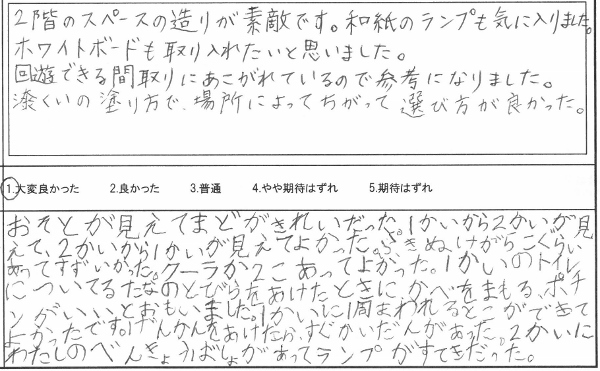 2階のスペースの造りが素敵です。和紙のランプも気に入りました。
ホワイトボードも取り入れたいと思いました。
回遊できる間取りにあこがれているので参考になりました。
漆くいの塗り方で、場所によってちがって選び方が良かった。
1.大変良かった 2.良かった 3.普通 4.やや期待はずれ 5.期待はずれ
おそとが見えてまどがきれいだった。1かいから2かいが見
えて、2かいから1かいが見えてよかった。ふきぬけがらこくらい
あってすずしかった。クーラが2こあってよかった。1かいのトイレ
についてるたなのとびらをあけたときにかべをまもる、ポチ
ンがいいとおもいました。1かいに1周まわれるとこができて
よかったです。げんかんをあけたら、すぐかいだんがあった。2かいに
わたしのべんきょうばしょがあってランプがすてきだった。